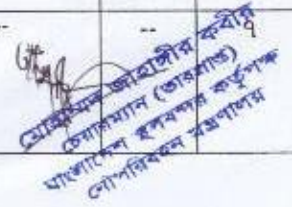 -- --
৭
মোহাম্মদ জাহাঙ্গীর কবীর
চেয়ারম্যান (ভারপ্রাপ্ত)
বাংলাদেশ স্থলবন্দর কর্তৃপক্ষ
নৌপরিবহন মন্ত্রণালয়